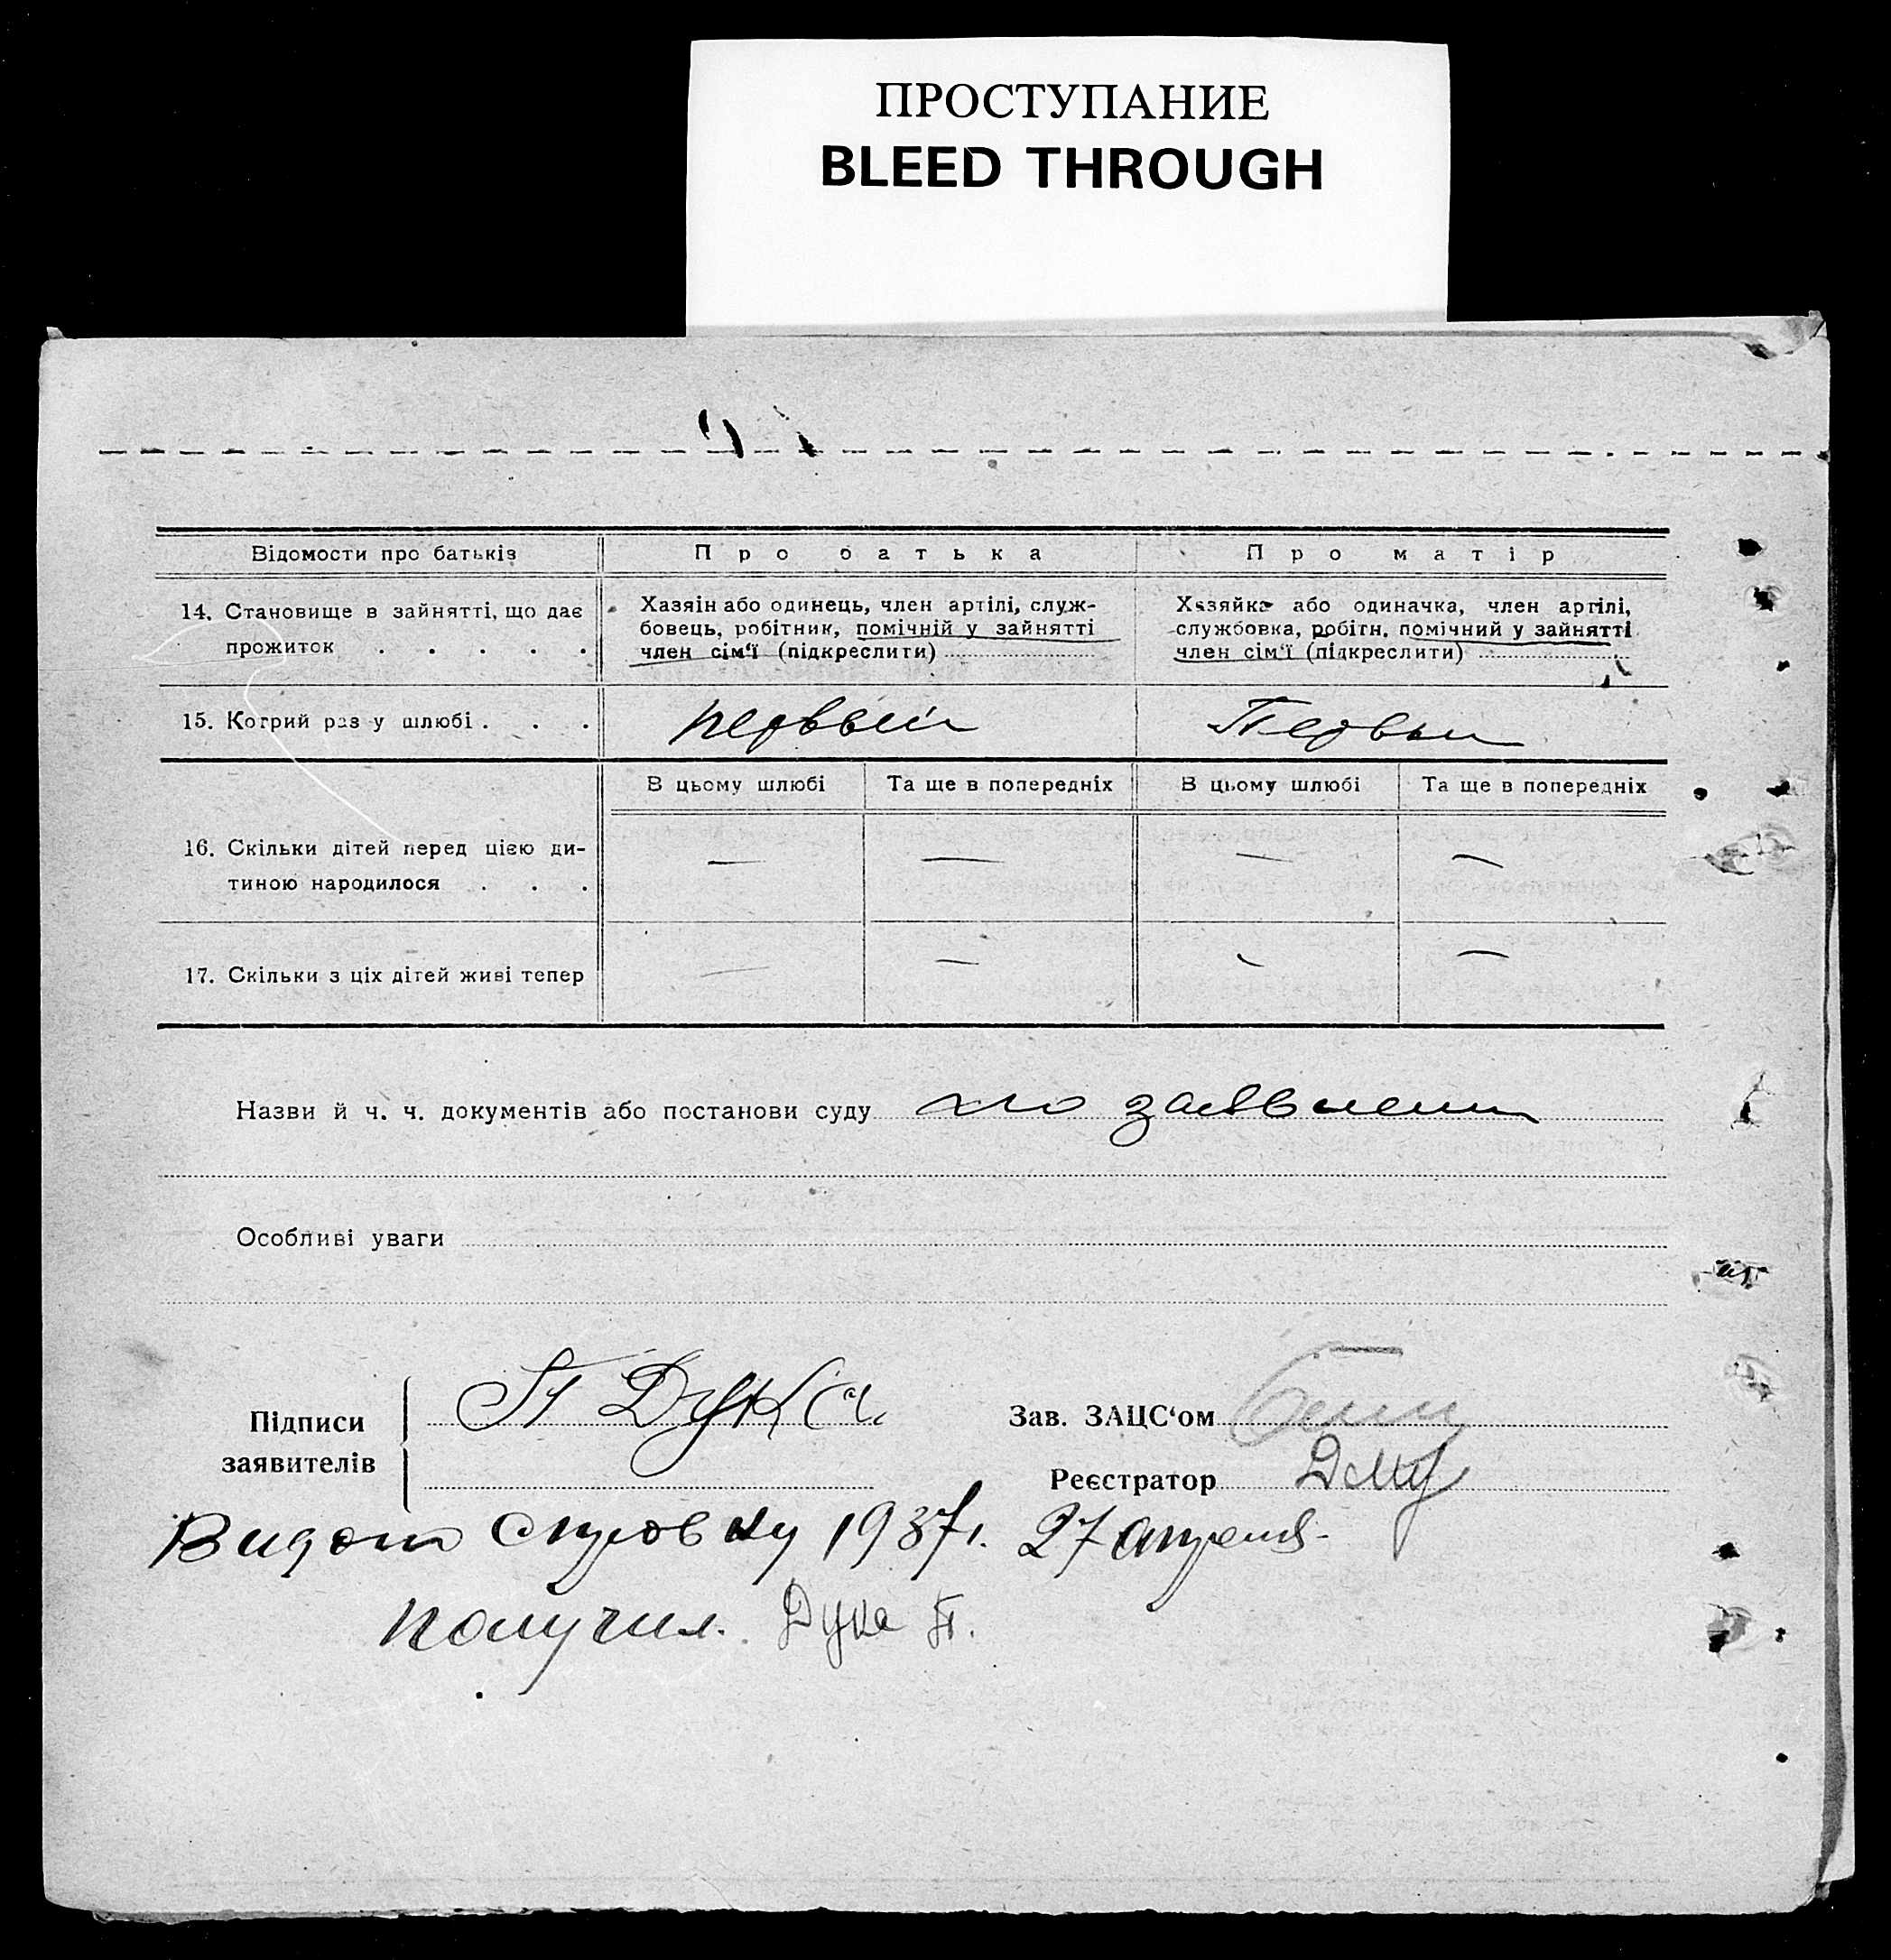 ПРОСТУПАНИЕ
BLEED THROUGH
Відомости про батьків
Про батька
Про матір
14. Становище в зайнятті, що дає
прожиток . . . . .
Хазяін або одинець, член артілі, служ-
бовець, робітник, помічній у зайнятті
член сім'ї (підкреслити)
Хазяйка або одиначка, член артілі,
службовка, робітн. помічний у зайнятті
член сім'ї (підкреслити)
15. Котрий раз у шлюбі . . .
первый
Первы
В цьому шлюбі
Та ще в попередніх
В цьому шлюбі
Та ще в попередніх
16. Скільки дітей перед цією ди-
тиною народилося . . .
— — — —
17. Скільки з ціх дітей живі тепер
— — — —
Назви й ч. ч. документів або постанови суду по заявлению
Особливі уваги
Підписи
заявителів
П Дука
Зав. ЗАЦС'ом
Реєстратор
справку 1937г. 27 апреля
получил. Дука П.